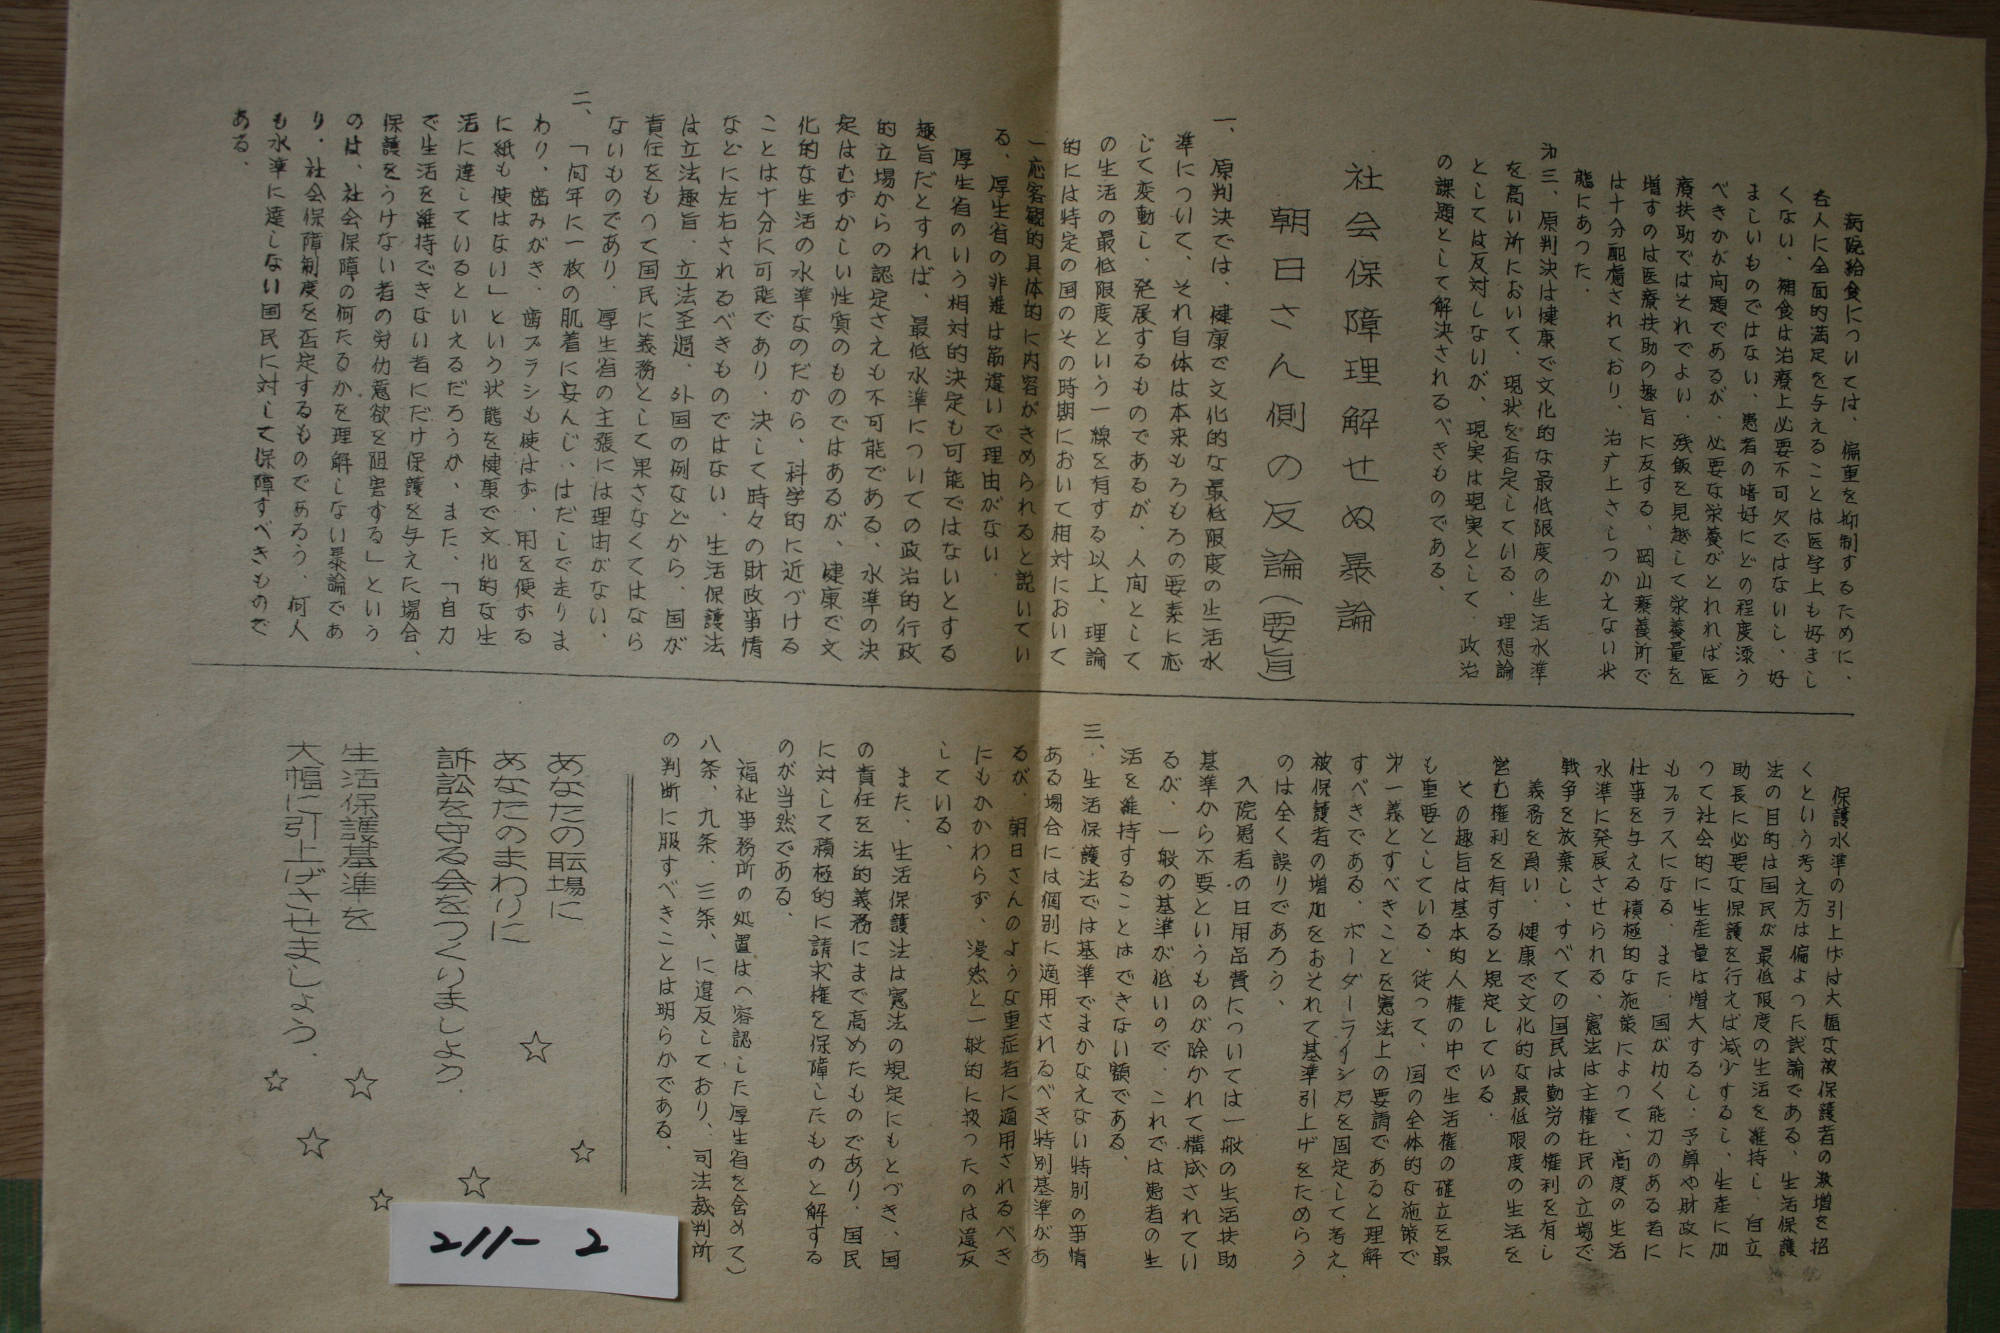 病院給食については、偏重を抑制するために、
各人に全面的満足を与えることは医学上も好まし
くない、補食は治療上必要不可欠ではないし、好
ましいものではない、患者の嗜好にどの程度添う
べきかが問題であるが、必要な栄養がとれれば医
療扶助ではそれでよい、残飯を見越して栄養量を
増すのは医療扶助の趣旨に反する、岡山療養所で
は十分配慮されており、治疗上さしつかえない状
態にあった、
才三、原判決は健康で文化的な最低限度の生活水準
を高い所において、現状を否定している、理想論
としては反対しないが、現実は現実として、政治
の課題として解決されるべきものである、
社会保障理解せぬ暴論
朝日さん側の反論（要旨）
一、原判決では、健康で文化的な最低限度の生活水
準について、それ自体は本来もろもろの要素に応
じて変動し、発展するものであるが、人间として
の生活の最低限度という一線を有する以上、理論
的には特定の国のその時期において相対において
一応客観的具体的に内容がきめられると説いてい
る、厚生省の非難は筋違いで理由がない、
厚生省のいう相対的決定も可能ではないとする
趣旨だとすれば、最低水準についての政治的行政
的立場からの認定さえも不可能である、水準の決
定はむずかしい性質のものではあるが、健康で文
化的な生活の水準なのだから、科学的に近づける
ことは十分に可能であり、決して時々の財政事情
などに左右されるべきものではない、生活保護法
は立法趣旨、立法至過、外国の例などから、国が
責任をもって国民に義務として果さなくてはなら
ないものであり、厚生省の主張には理由がない、
二、「何年に一枚の肌着に安んじ、はだしで走りま
わり、歯みがき、歯ブラシも使はず、用を便ずる
に紙も使はない」という状態を健康で文化的な生
活に達しているといえるだろうか、また、「自力
で生活を維持できない者にだけ保護を与えた場合、
保護をうけない者の労仂意欲を阻害する」という
のは、社会保障の何たるかを理解しない暴論であ
り、社会保障制度を否定するものであろう、何人
も水準に達しない国民に対して保障すべきもので
ある、
保護水準の引上げは大幅な被保護者の激増を招
くという考え方は偏よった試論である、生活保護
法の目的は国民が最低限度の生活を維持し、自立
助長に必要な保護を行えば減少するし、生産に加
って社会的に生産量は増大するし、予算や財政に
もプラスになる、また、国が仂く能力のある者に
仕事を与える積極的な施策によって、高度の生活
水準に発展させられる、憲法は主権在民の立場で
戦争を放棄し、すべての国民は勤労の権利を有し
義務を負い、健康で文化的な最低限度の生活を
営む権利を有すると規定している、
その趣旨は基本的人権の中で生活権の確立を最
も重要としている、従って、国の全体的な施策で
才一義とすべきことを憲法上の要請であると理解
すべきである、ボーダーライン层を固定して考え、
被保護者の増加をおそれて基準引上げをためらう
のは全く誤りであろう、
入院患者の日用品費については一般の生活扶助
基準から不要というものが除かれて構成されてい
るが、一般の基準が低いので、これでは患者の生
活を維持することはできない額である、
三、生活保護法では基準でまかなえない特別の事情
ある場合には個別に適用されるべき特別基準があ
るが、朝日さんのような重症者に適用されるべき
にもかかわらず、漫然と一般的に扱ったのは違反
している、
また、生活保護法は憲法の規定にもとづき、国
の責任を法的義務にまで高めたものであり、国民
に対して積極的に請求権を保障したものと解する
のが当然である、
福祉事務所の処置は（容認した厚生省を含めて）
八条、九条、三条、に違反しており、司法裁判所
の判断に服すべきことは明らかである、
あなたの耺場に
あなたのまわりに
訴訟を守る会をつくりましょう、
生活保護基準を
大幅に引上げさせましょう、
211-2